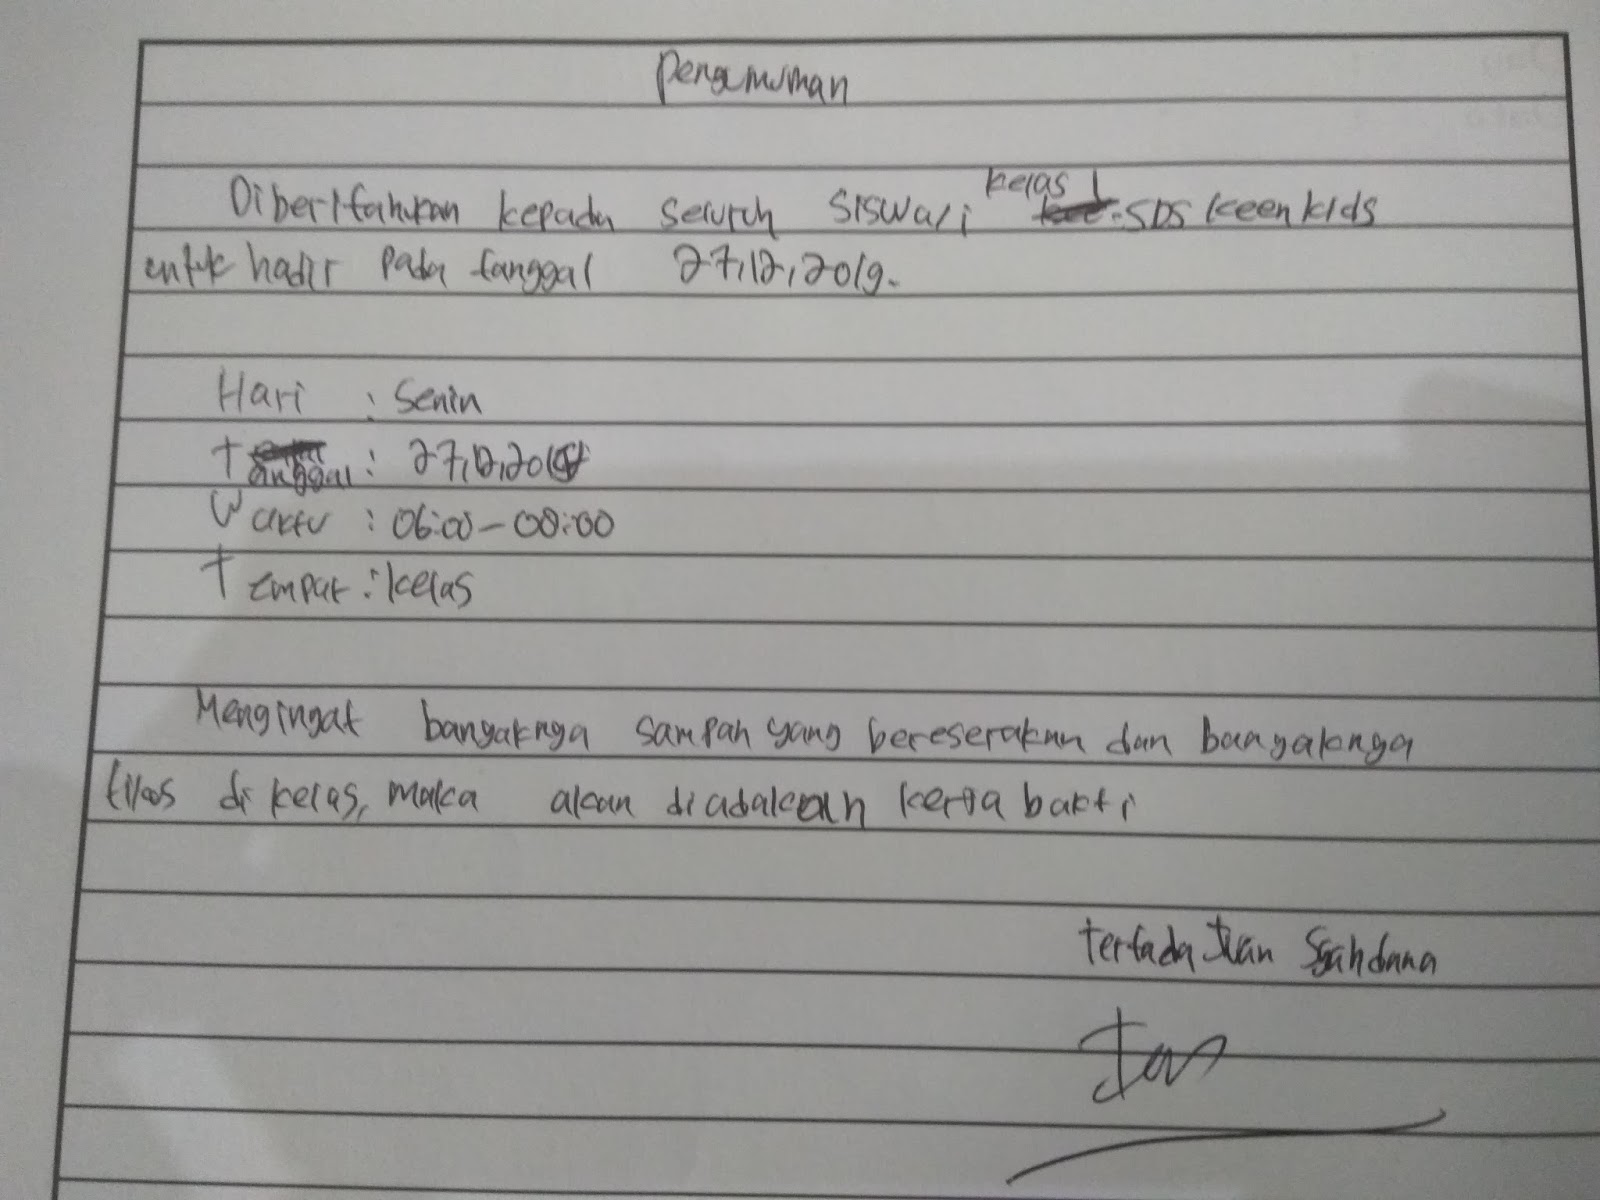 Pengumuman
Diberitahukan kepada seluruh siswa/i kelas 1 SDS keen kids
untuk hadir pada tanggal 27,12,2019.
Hari : Senin
Tanggal : 27,12,2019
Waktu : 06:00-08:00
Tempat : kelas
Mengingat banyaknya sampah yang bereserakan dan banyaknya
tikos di kelas, maka akan diadakan kerja bakti
tertada Syahdana